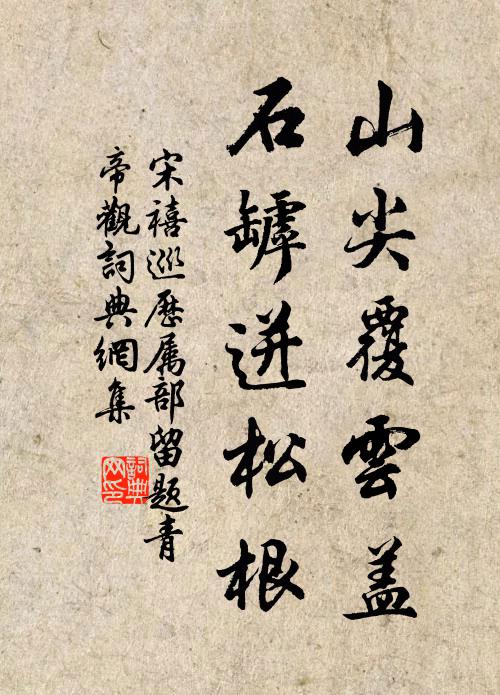 山尖覆雲盖
石罅迸松根
宋禧巡歷属部留题青
帝觀詞典網集
詞典
网印